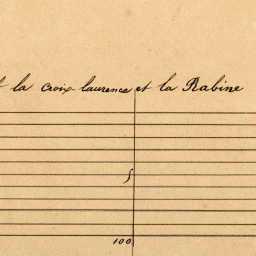 la croix-laurence et la Rabine
100